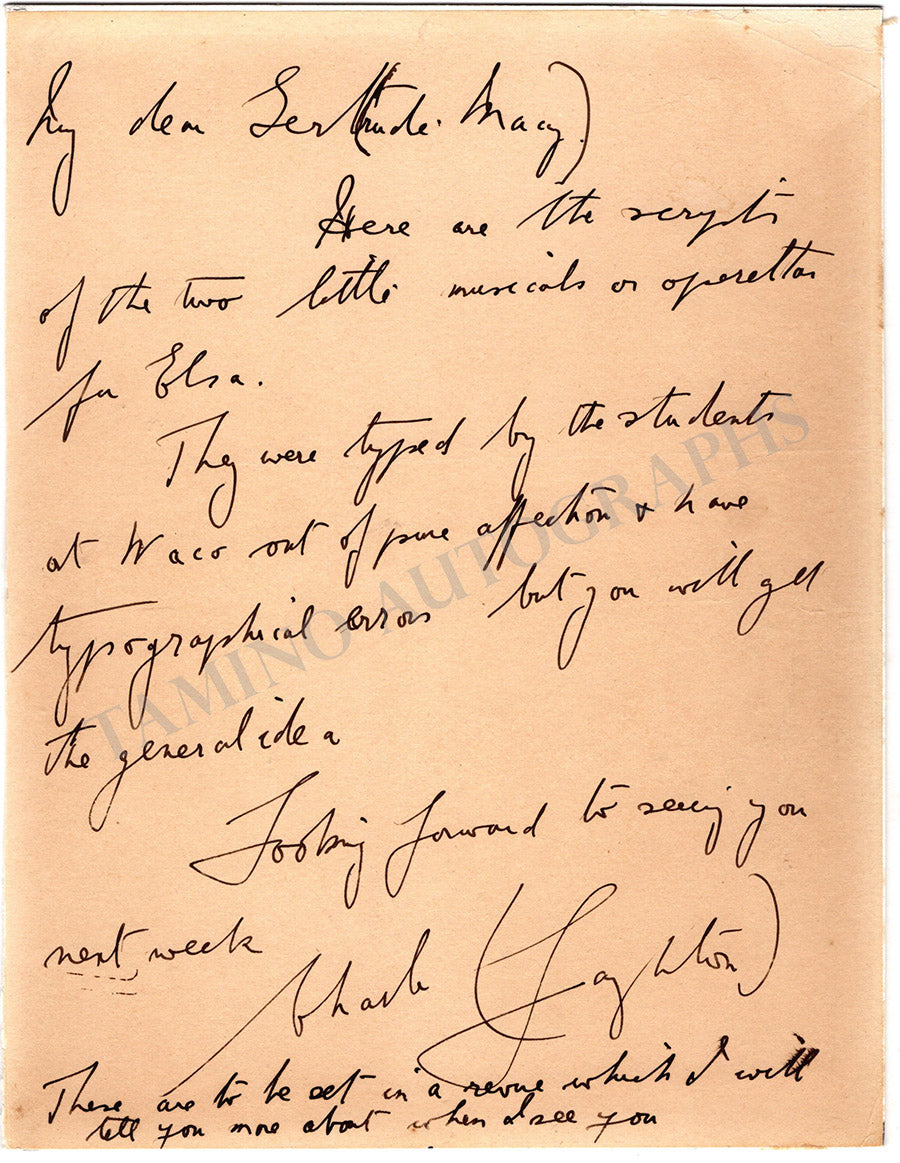 My dear Gert(rude. Macy)
Here are the scripts
of the two little musicals or operettas
for Elsa.
They were typed by the students
at Waco out of pure affection & have
typographical errors but you will get
the general idea
Looking forward to seeing you
next week
Charles (Laughton)
These are to be set in a revue which I will
tell you more about when I see you
TAMINO AUTOGRAPHS